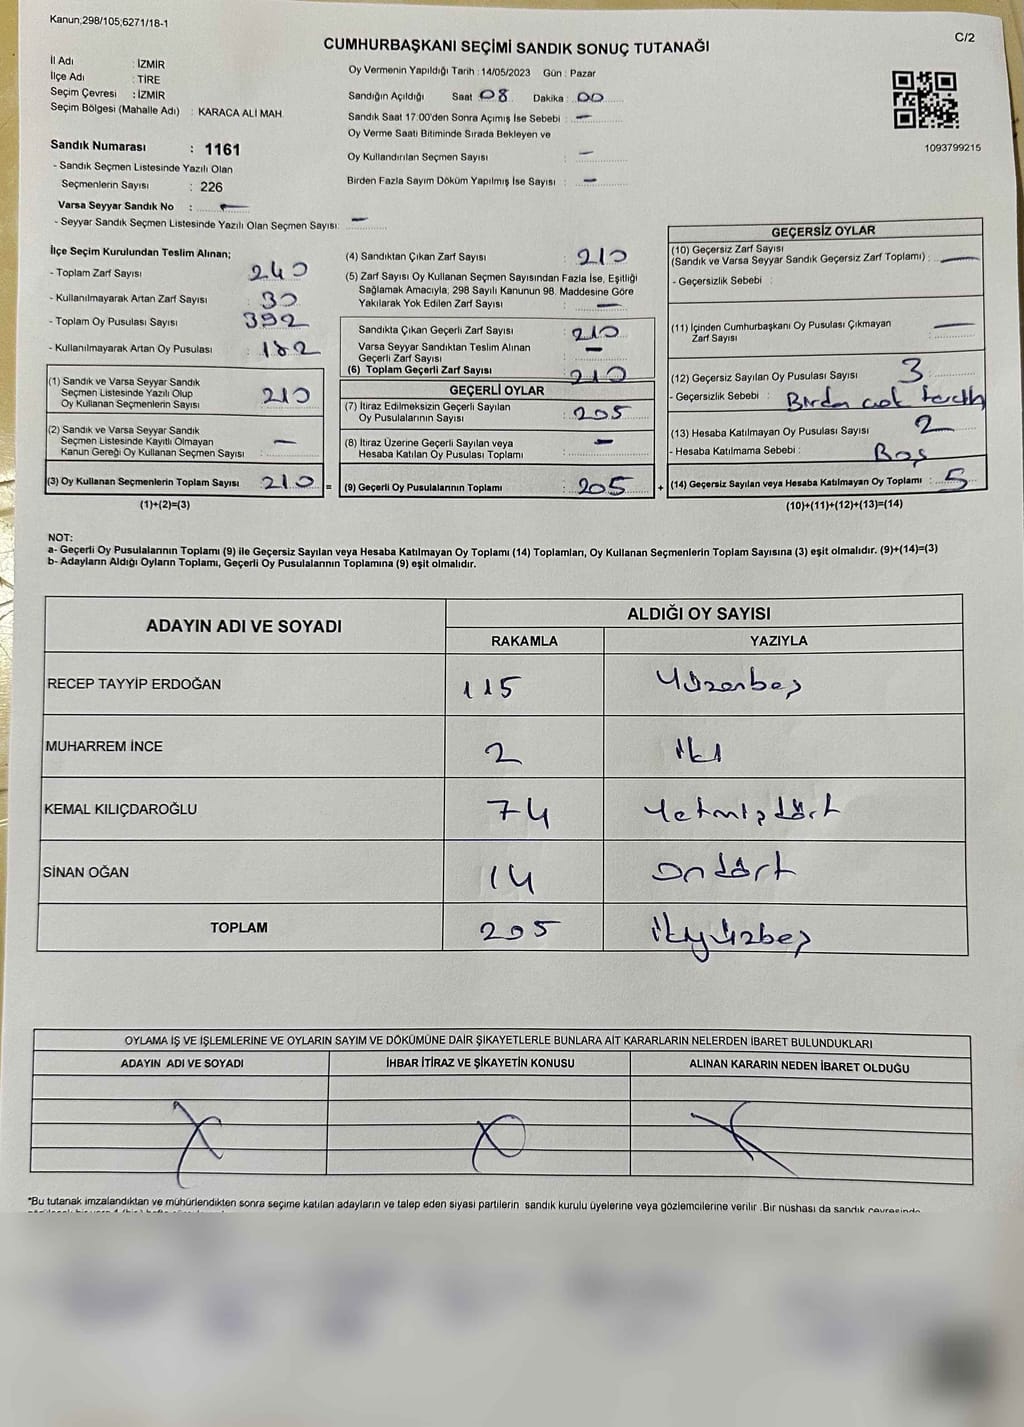 Kanun,298/105,6271/18-1
C/2
CUMHURBAŞKANI SEÇİMİ SANDIK SONUÇ TUTANAĞI
İl Adı : İZMİR
İlçe Adı : TİRE
Seçim Çevresi : İZMİR
Seçim Bölgesi (Mahalle Adı) : KARACA ALİ MAH.
Sandık Numarası : 1161
- Sandık Seçmen Listesinde Yazılı Olan
Seçmenlerin Sayısı : 226
Varsa Seyyar Sandık No : —
- Seyyar Sandık Seçmen Listesinde Yazılı Olan Seçmen Sayısı: —
Oy Vermenin Yapıldığı Tarih : 14/05/2023 Gün : Pazar
Sandığın Açıldığı Saat 08 Dakika : 00
Sandık Saat 17:00'den Sonra Açımış İse Sebebi : —
Oy Verme Saati Bitiminde Sırada Bekleyen ve
Oy Kullandırılan Seçmen Sayısı : —
Birden Fazla Sayım Döküm Yapılmış İse Sayısı : —
1093799215
İlçe Seçim Kurulundan Teslim Alınan;
- Toplam Zarf Sayısı : 240
- Kullanılmayarak Artan Zarf Sayısı : 30
- Toplam Oy Pusulası Sayısı : 392
- Kullanılmayarak Artan Oy Pusulası : 182
(1) Sandık ve Varsa Seyyar Sandık
Seçmen Listesinde Yazılı Olup
Oy Kullanan Seçmenlerin Sayısı : 210
(2) Sandık ve Varsa Seyyar Sandık
Seçmen Listesinde Kayıtlı Olmayan
Kanun Gereği Oy Kullanan Seçmen Sayısı : —
(3) Oy Kullanan Seçmenlerin Toplam Sayısı : 210 =
(1)+(2)=(3)
(4) Sandıktan Çıkan Zarf Sayısı : 210
(5) Zarf Sayısı Oy Kullanan Seçmen Sayısından Fazla İse, Eşitliği
Sağlamak Amacıyla, 298 Sayılı Kanunun 98. Maddesine Göre
Yakılarak Yok Edilen Zarf Sayısı : —
Sandıkta Çıkan Geçerli Zarf Sayısı : 210
Varsa Seyyar Sandıktan Teslim Alınan
Geçerli Zarf Sayısı : —
(6) Toplam Geçerli Zarf Sayısı : 210
GEÇERLİ OYLAR
(7) İtiraz Edilmeksizin Geçerli Sayılan
Oy Pusulasının Sayısı : 205
(8) İtiraz Üzerine Geçerli Sayılan veya
Hesaba Katılan Oy Pusulası Toplamı : —
(9) Geçerli Oy Pusulalarının Toplamı : 205 +
GEÇERSİZ OYLAR
(10) Geçersiz Zarf Sayısı
(Sandık ve Varsa Seyyar Sandık Geçersiz Zarf Toplamı) : —
- Geçersizlik Sebebi :
(11) İçinden Cumhurbaşkanı Oy Pusulası Çıkmayan
Zarf Sayısı : —
(12) Geçersiz Sayılan Oy Pusulası Sayısı : 3
- Geçersizlik Sebebi : Birden çok tercih
(13) Hesaba Katılmayan Oy Pusulası Sayısı : 2
- Hesaba Katılmama Sebebi : Boş
(14) Geçersiz Sayılan veya Hesaba Katılmayan Oy Toplamı : 5
(10)+(11)+(12)+(13)=(14)
NOT:
a- Geçerli Oy Pusulalarının Toplamı (9) ile Geçersiz Sayılan veya Hesaba Katılmayan Oy Toplamı (14) Toplamları, Oy Kullanan Seçmenlerin Toplam Sayısına (3) eşit olmalıdır. (9)+(14)=(3)
b- Adayların Aldığı Oyların Toplamı, Geçerli Oy Pusulalarının Toplamına (9) eşit olmalıdır.
ADAYIN ADI VE SOYADI ALDIĞI OY SAYISI
RAKAMLA YAZIYLA
RECEP TAYYİP ERDOĞAN 115 Yüzonbeş
MUHARREM İNCE 2 iki
KEMAL KILIÇDAROĞLU 74 Yetmişdört
SİNAN OĞAN 14 Ondört
TOPLAM 205 ikiyüzbeş
OYLAMA İŞ VE İŞLEMLERİNE VE OYLARIN SAYIM VE DÖKÜMÜNE DAİR ŞİKAYETLERLE BUNLARA AİT KARARLARIN NELERDEN İBARET BULUNDUKLARI
ADAYIN ADI VE SOYADI İHBAR İTİRAZ VE ŞİKAYETİN KONUSU ALINAN KARARIN NEDEN İBARET OLDUĞU
*Bu tutanak imzalandıktan ve mühürlendikten sonra seçime katılan adayların ve talep eden siyasi partilerin sandık kurulu üyelerine veya gözlemcilerine verilir .Bir nüshası da sandık çevresinde